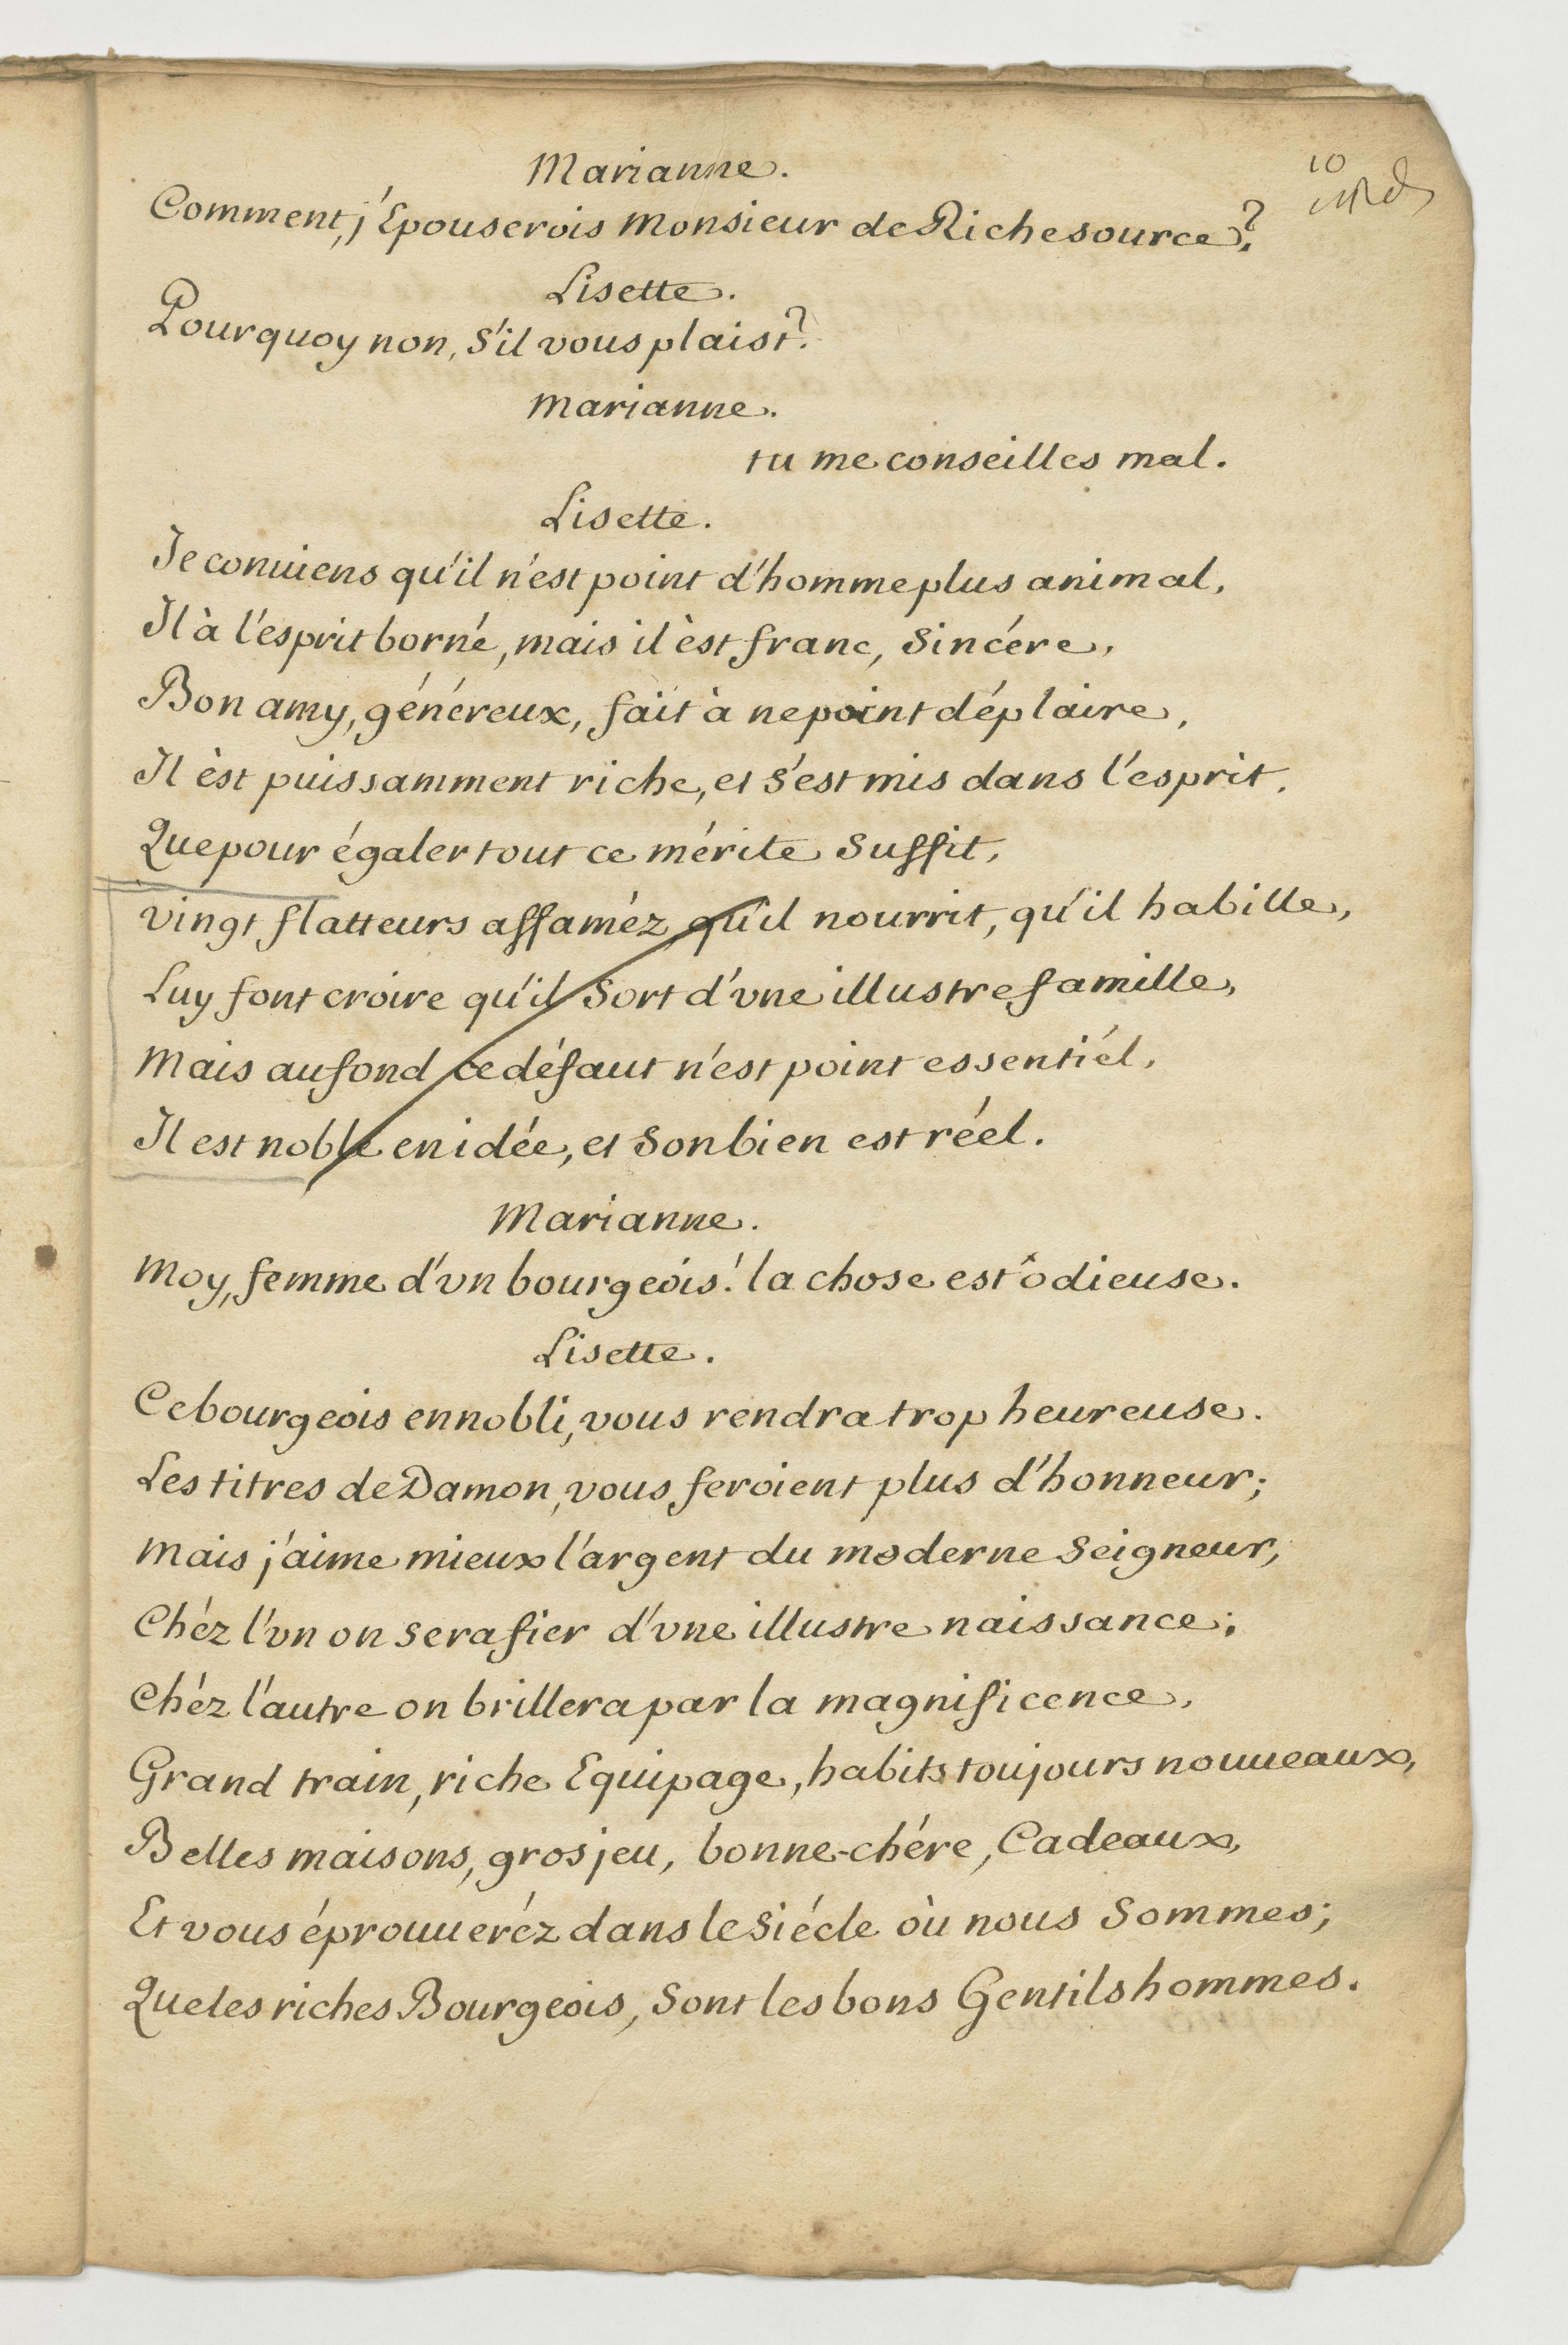 10
Marianne.
Comment, j'Epouserois Monsieur de Richesource?
Lisette.
Pourquoy non, s'il vous plaist?
Marianne.
tu me conseilles mal.
Lisette.
Je conuiens qu'il n'est point d'homme plus animal,
Il à l'esprit borné, mais il èst franc, Sincére,
Bon amy, généreux, fait à ne point déplaire,
Il èst puissamment riche, et s'est mis dans l'esprit,
Que pour égaler tout ce mérite Suffit,
vingt flatteurs affaméz, qu'il nourrit, qu'il habille,
Luy font croire qu'il Sort d'vne illustre famille,
Mais au fond ce défaut n'est point essentiél,
Il est noble en idée, et Son bien est réel.
Marianne.
Moy, femme d'vn bourgeois! la chose est ôdieuse.
Lisette.
Ce bourgeois ennobli, vous rendra trop heureuse.
Les titres de Damon, vous feroient plus d'honneur;
Mais j'aime mieux l'argent du moderne Seigneur,
Chéz l'vn on Sera fier d'vne illustre naissance;
Chéz l'autre on brillera par la magnificence,
Grand train, riche Equipage, habits toujours nouueaux,
Belles maisons, gros jeu, bonne-chére, Cadeaux,
Et vous éprouueréz dans le Siécle où nous Sommes;
Que les riches Bourgeois, Sont les bons Gentilshommes.